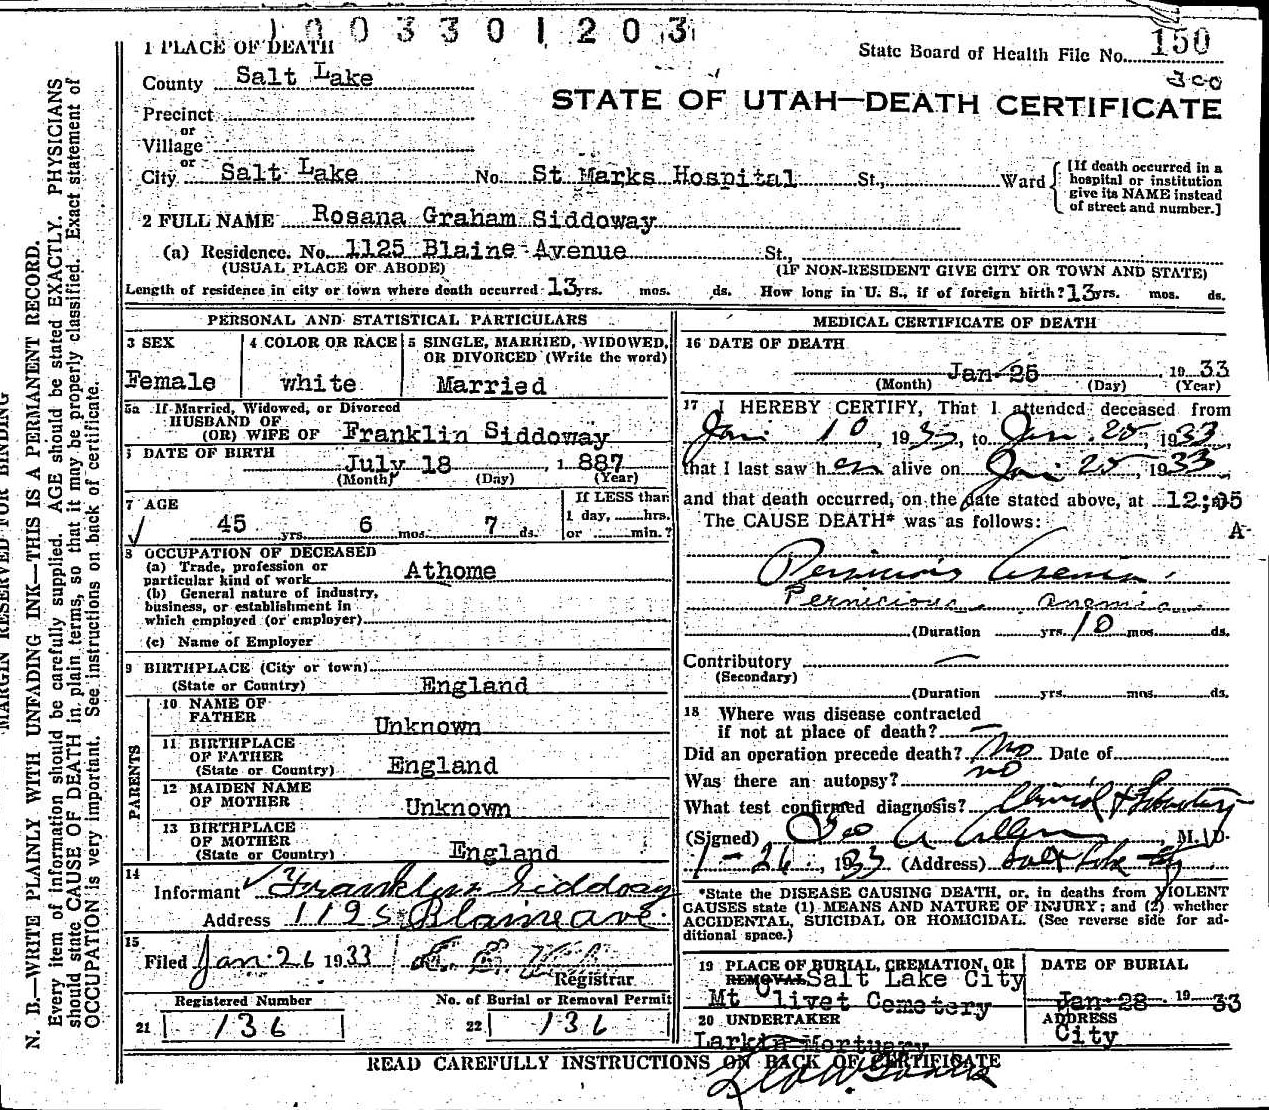 1003301203
1 PLACE OF DEATH
State Board of Health File No. 150
300
County Salt Lake
STATE OF UTAH—DEATH CERTIFICATE
Precinct
or
Village
or
City Salt Lake No. St Marks Hospital St., Ward
[If death occurred in a hospital or institution give its NAME instead of street and number.]
2 FULL NAME Rosana Graham Siddoway
(a) Residence. No. 1125 Blaine Avenue St.,
(USUAL PLACE OF ABODE) (IF NON-RESIDENT GIVE CITY OR TOWN AND STATE)
Length of residence in city or town where death occurred 13 yrs. mos. ds. How long in U. S., if of foreign birth? 13 yrs. mos. ds.
PERSONAL AND STATISTICAL PARTICULARS
3 SEX
Female
4 COLOR OR RACE
white
5 SINGLE, MARRIED, WIDOWED,
OR DIVORCED (Write the word)
Married
5a If Married, Widowed, or Divorced
HUSBAND OF
(OR) WIFE OF Franklin Siddoway
6 DATE OF BIRTH
July 18, 1887
(Month) (Day) (Year)
7 AGE
45 yrs. 6 mos. 7 ds.
If LESS than
1 day, hrs.
or min.?
8 OCCUPATION OF DECEASED
(a) Trade, profession or
particular kind of work Athome
(b) General nature of industry,
business, or establishment in
which employed (or employer)
(c) Name of Employer
9 BIRTHPLACE (City or town)
(State or Country) England
PARENTS
10 NAME OF
FATHER Unknown
11 BIRTHPLACE
OF FATHER
(State or Country) England
12 MAIDEN NAME
OF MOTHER Unknown
13 BIRTHPLACE
OF MOTHER
(State or Country) England
14
Informant Franklin Siddoway
Address 1125 Blaine ave.
15
Filed Jan. 26 1933
Registrar
Registered Number
21 136
No. of Burial or Removal Permit
22 136
MEDICAL CERTIFICATE OF DEATH
16 DATE OF DEATH
Jan 25 1933
(Month) (Day) (Year)
17 I HEREBY CERTIFY, That I attended deceased from
Jan. 10, 1933, to Jan. 25, 1933,
that I last saw her alive on Jan. 25, 1933
and that death occurred, on the date stated above, at 12;05
A
The CAUSE DEATH* was as follows:
Pernicious Anemia.
Pernicious anemia
(Duration yrs. 10 mos. ds.
Contributory —
(Secondary)
(Duration yrs. mos. ds.
18 Where was disease contracted
if not at place of death? —
Did an operation precede death? No Date of
Was there an autopsy? no
What test confirmed diagnosis?
(Signed) Geo A Allen, M. D.
1-26, 1933 (Address) Salt Lake City
*State the DISEASE CAUSING DEATH, or, in deaths from VIOLENT
CAUSES state (1) MEANS AND NATURE OF INJURY; and (2) whether
ACCIDENTAL, SUICIDAL OR HOMICIDAL. (See reverse side for ad-
ditional space.)
19 PLACE OF BURIAL, CREMATION, OR
REMOVAL Salt Lake City
Mt Olivet Cemetery
DATE OF BURIAL
Jan 28 1933
20 UNDERTAKER
Larkin Mortuary
ADDRESS
City
READ CAREFULLY INSTRUCTIONS ON BACK OF CERTIFICATE
MARGIN RESERVED FOR BINDING
N. B.—WRITE PLAINLY WITH UNFADING INK—THIS IS A PERMANENT RECORD.
Every item of information should be carefully supplied. AGE should be stated EXACTLY. PHYSICIANS
should state CAUSE OF DEATH in plain terms, so that it may be properly classified. Exact statement of
OCCUPATION is very important. See instructions on back of certificate.